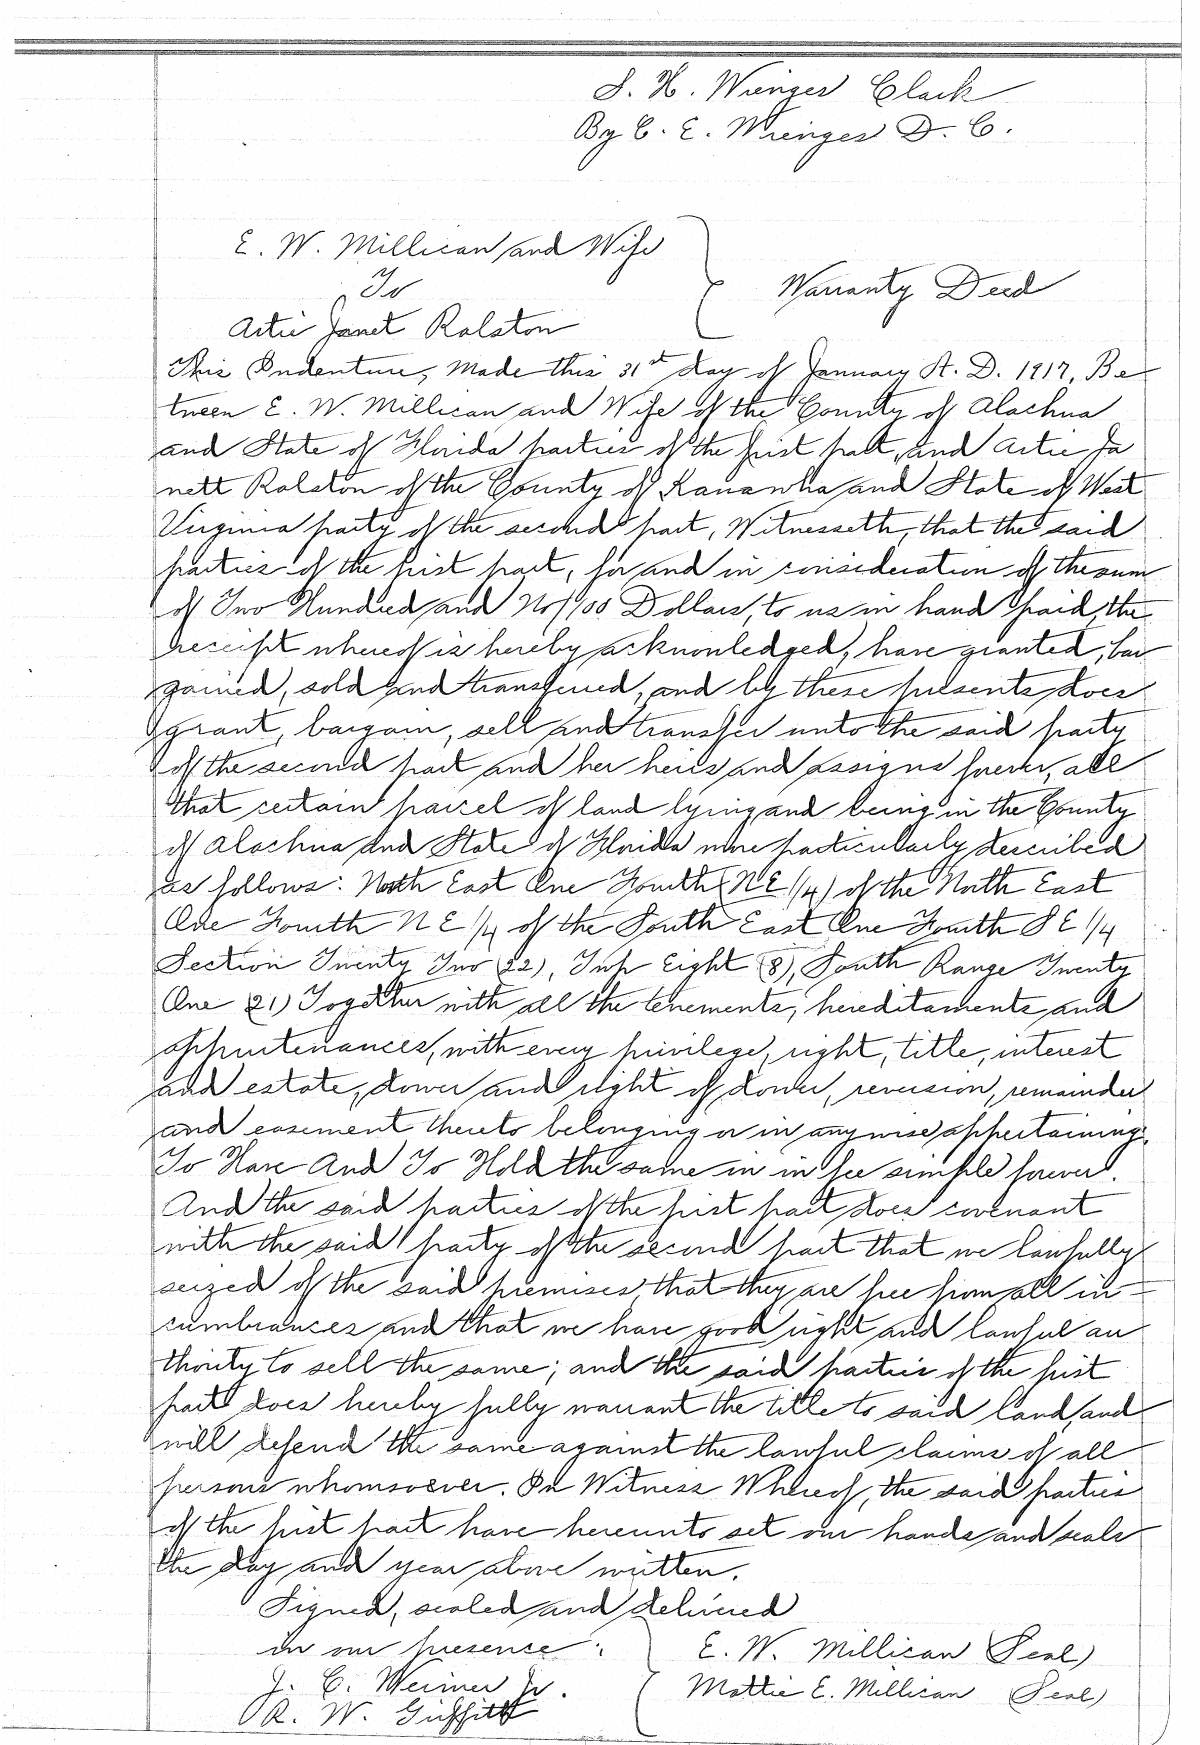 S. H. Wienges Clerk
By C. E. Wienges D. C.
E. W. Millican and Wife
To
Warranty Deed
Artie Janet Ralston
This Indenture, Made this 31st day of January A. D. 1917, Be
tween E. W. Millican and Wife of the County of Alachua
and State of Florida parties of the first part, and Artie Ja
nett Ralston of the County of Kanawha and State of West
Virginia party of the second part, Witnesseth, that the said
parties of the first part, for and in consideration of the sum
of Two Hundred and No/100 Dollars, to us in hand paid, the
receipt whereof is hereby acknowledged, have granted, bar
gained, sold and transferred, and by these presents does
grant, bargain, sell and transfer unto the said party
of the second part and her heirs and assigns forever, all
that certain parcel of land lying and being in the County
of Alachua and State of Florida more particularly described
as follows: North East One Fourth (NE 1/4) of the North East
One Fourth NE 1/4 of the South East One Fourth SE 1/4
Section Twenty Two (22), Twp Eight (8), South Range Twenty
One (21) Together with all the tenements, hereditaments and
appurtenances, with every privilege, right, title, interest
and estate, dower and right of dower, reversion, remainder
and easement thereto belonging or in anywise appertaining.
To Have And To Hold the same in in fee simple forever.
And the said parties of the first part does covenant
with the said party of the second part that we lawfully
seized of the said premises, that they are free from all in-
cumbrances and that we have good right and lawful au
thority to sell the same; and the said parties of the first
part does hereby fully warrant the title to said land, and
will defend the same against the lawful claims of all
persons whomsoever. In Witness Whereof, the said parties
of the first part have hereunto set our hands and seals
the day and year above written.
Signed, sealed and delivered
in our presence:
E. W. Millican (Seal)
J. C. Weimer Jr.
Mattie E. Millican (Seal)
R. W. Griffith